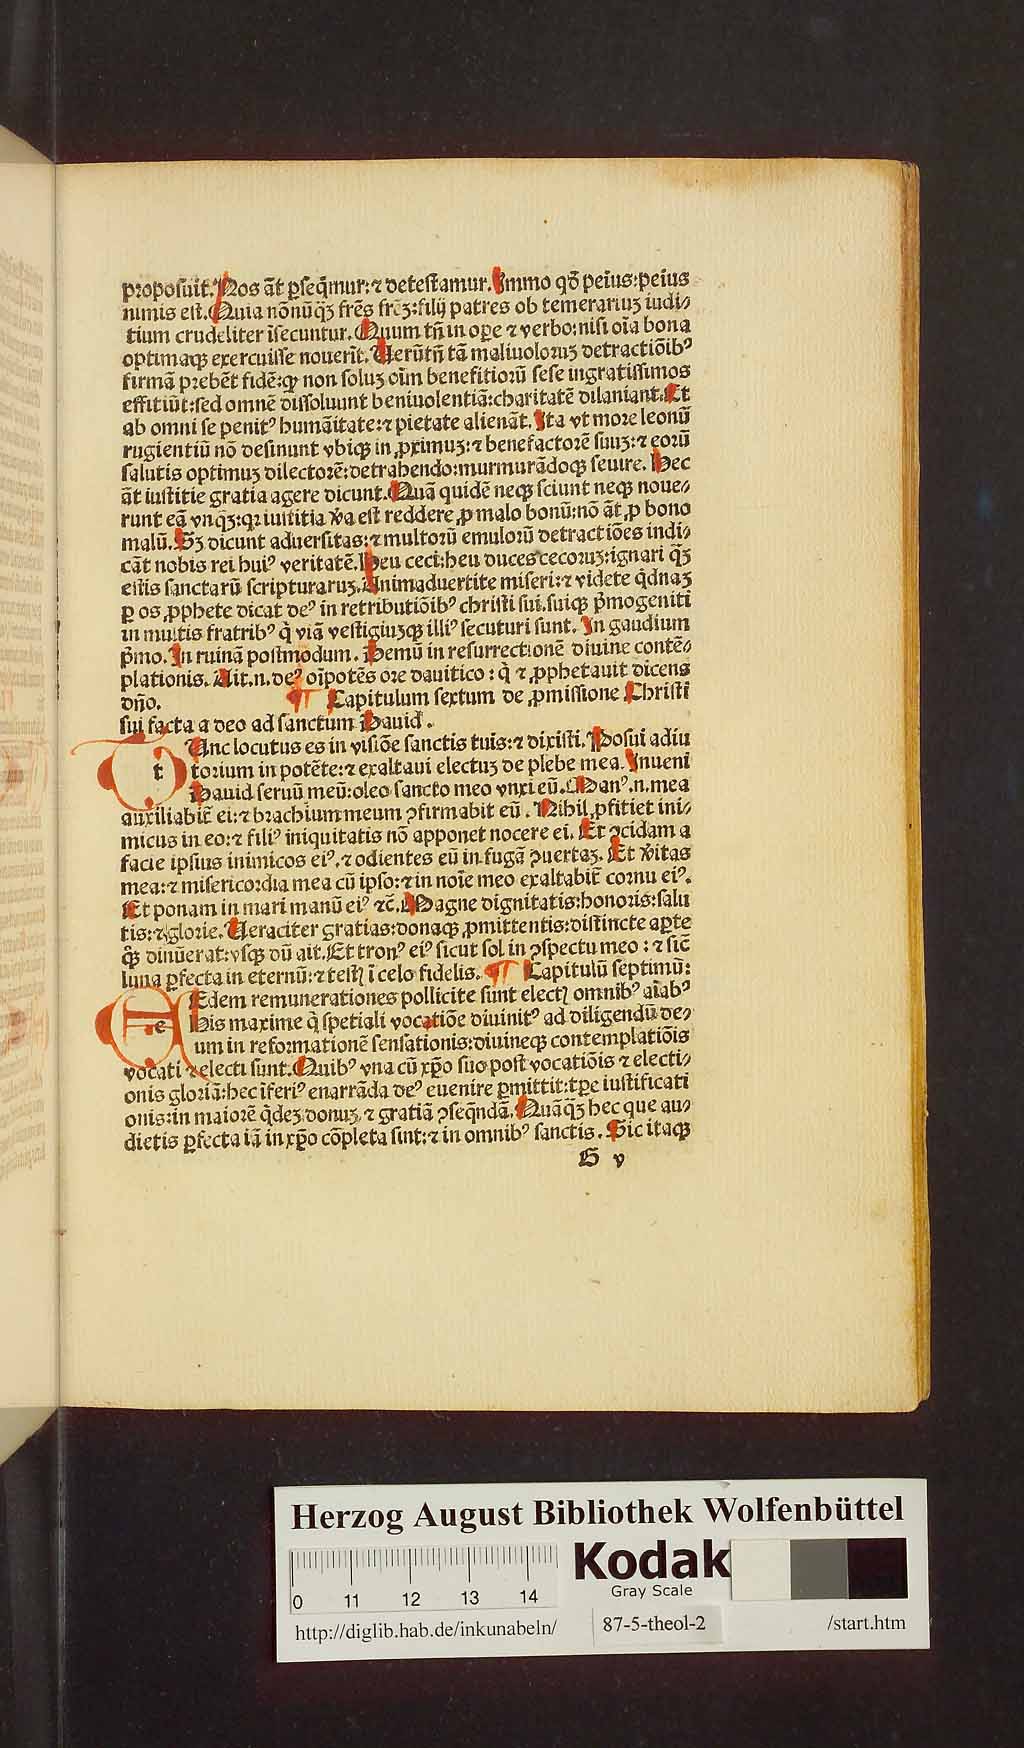 proposuit. Nos āt ꝑseq̄mur: ⁊ detestamur. Immo qď peius: peius
nimis est. Quia nōnūq̄ꝫ frēs frēꝫ: filij patres ob temerariuꝫ iudi⸗
tium crudeliter īsecuntur. Quum tn̄ in oꝑe ⁊ verbo: nisi oīa bona
optimaqꝫ exercuisse nouerīt. Uerūtn̄ tā maliuoloruꝫ detractiōibꝰ
firmā prebēt fidē: qꝫ non soluꝫ oīm benefitiorū sese ingratissimos
effitiūt: sed omnē dissoluunt beniuolentiā: charitatē dilaniant. Et
ab omni se penitꝰ humāitate: ⁊ pietate alienāt. Ita vt more leonū
rugientiū nō desinunt vbiqꝫ in ꝓximuꝫ: ⁊ benefactorē suuꝫ: ⁊ eorū
salutis optimuꝫ dilectorē: detrahendo: murmurādoqꝫ seuire. Hec
āt iustitie gratia agere dicunt. Quā quidē neqꝫ sciunt neqꝫ noue⸗
runt eā vnq̄ꝫ: qꝛ iustitia v̄a est reddere ꝓ malo bonū: nō āt ꝓ bono
malū. Sꝫ dicunt aduersitas: ⁊ multorū emulorū detractiōes indi⸗
cāt nobis rei huiꝰ veritatē. Heu ceci: heu duces cecoruꝫ: ignari q̄ꝫ
estis sanctarū scripturaruꝫ. Animaduertite miseri: ⁊ videte q̇dnaꝫ
ꝑ os ꝓphete dicat deꝰ in retributiōibꝰ christi sui. suiqꝫ p̄mogeniti
in multis fratribꝰ q̇ viā vestigiuꝫqꝫ illiꝰ secuturi sunt. In gaudium
p̄mo. In ruinā postmodum. Demū in resurrectionē diuine contē⸗
plationis. Ait .n. deꝰ oīpotēs ore dauitico: q̇ ⁊ ꝓphetauit dicens
dn̄o. ¶ Capitulum sextum de ꝓmissione Christi
sui facta a deo ad sanctum Dauid.
t Unc locutus es in visiōe sanctis tuis: ⁊ dixisti. Posui adiu
torium in potēte: ⁊ exaltaui electuꝫ de plebe mea. Inueni
Dauid seruū meū: oleo sancto meo vnxi eū. Manꝰ .n. mea
auxiliabit̄ ei: ⁊ brachium meum ꝯfirmabit eū. Nihil ꝓfitiet ini⸗
micus in eo: ⁊ filiꝰ iniquitatis nō apponet nocere ei. Et ꝯcidam a
facie ipsius inimicos eiꝰ. ⁊ odientes eū in fugā ꝯuertaꝫ. Et v̄itas
mea: ⁊ misericordia mea cū ipso: ⁊ in noīe meo exaltabit̄ cornu eiꝰ.
Et ponam in mari manū eiꝰ ⁊c̄. Magne dignitatis: honoris: salu
tis: ⁊ glorie. Ueraciter gratias: donaqꝫ ꝓmittentis: distincte aꝑte
q̇ꝫ dinūerat: vsqꝫ dū ait. Et tronꝰ eiꝰ sicut sol in ꝯspectu meo: ⁊ sic̄
luna ꝑfecta in eternū: ⁊ testꝭ ī celo fidelis. ¶ Capitulū septimū:
e Edem remunerationes pollicite sunt electꝭ omnibꝰ aīabꝰ
His maxime q̇ spetiali vocatiōe diuinitꝰ ad diligendū de⸗
um in reformationē sensationis: diuineqꝫ contemplatiōis
vocati ⁊ electi sunt. Quibꝰ vna cū xp̄o suo post vocatiōis ⁊ electi⸗
onis gloriā: hec īferiꝰ enarrāda deꝰ euenire ꝑmittit: tꝑe iustificati
onis: in maiorē q̇deꝫ donuꝫ ⁊ gratiā ꝯseq̄ndā. Quāq̄ꝫ hec que au⸗
dietis ꝑfecta iā in xp̄o cōpleta sunt: ⁊ in omnibꝰ sanctis. Sic itaqꝫ
G v
Herzog August Bibliothek Wolfenbüttel
0 11 12 13 14
Kodak
Gray Scale
http://diglib.hab.de/inkunabeln/ 87-5-theol-2 /start.htm